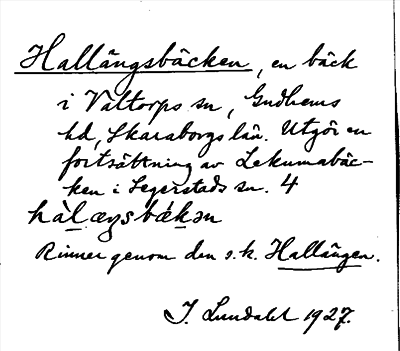 Hallängsbäcken, en bäck
i Valtorps sn, Gudhems
hd, Skaraborgs län. Utgör en
fortsättning av Lekumabäc-
ken i Segerstads sn. 4
hàl æŋsbǽkən
Rinner genom den s.k. Hallängen.
I. Lundahl 1927.